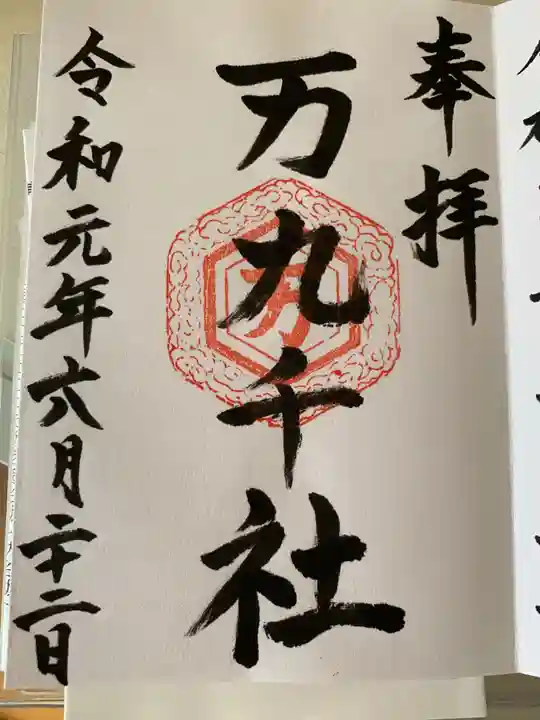 奉拝
万九千社
万
令和元年六月二十二日